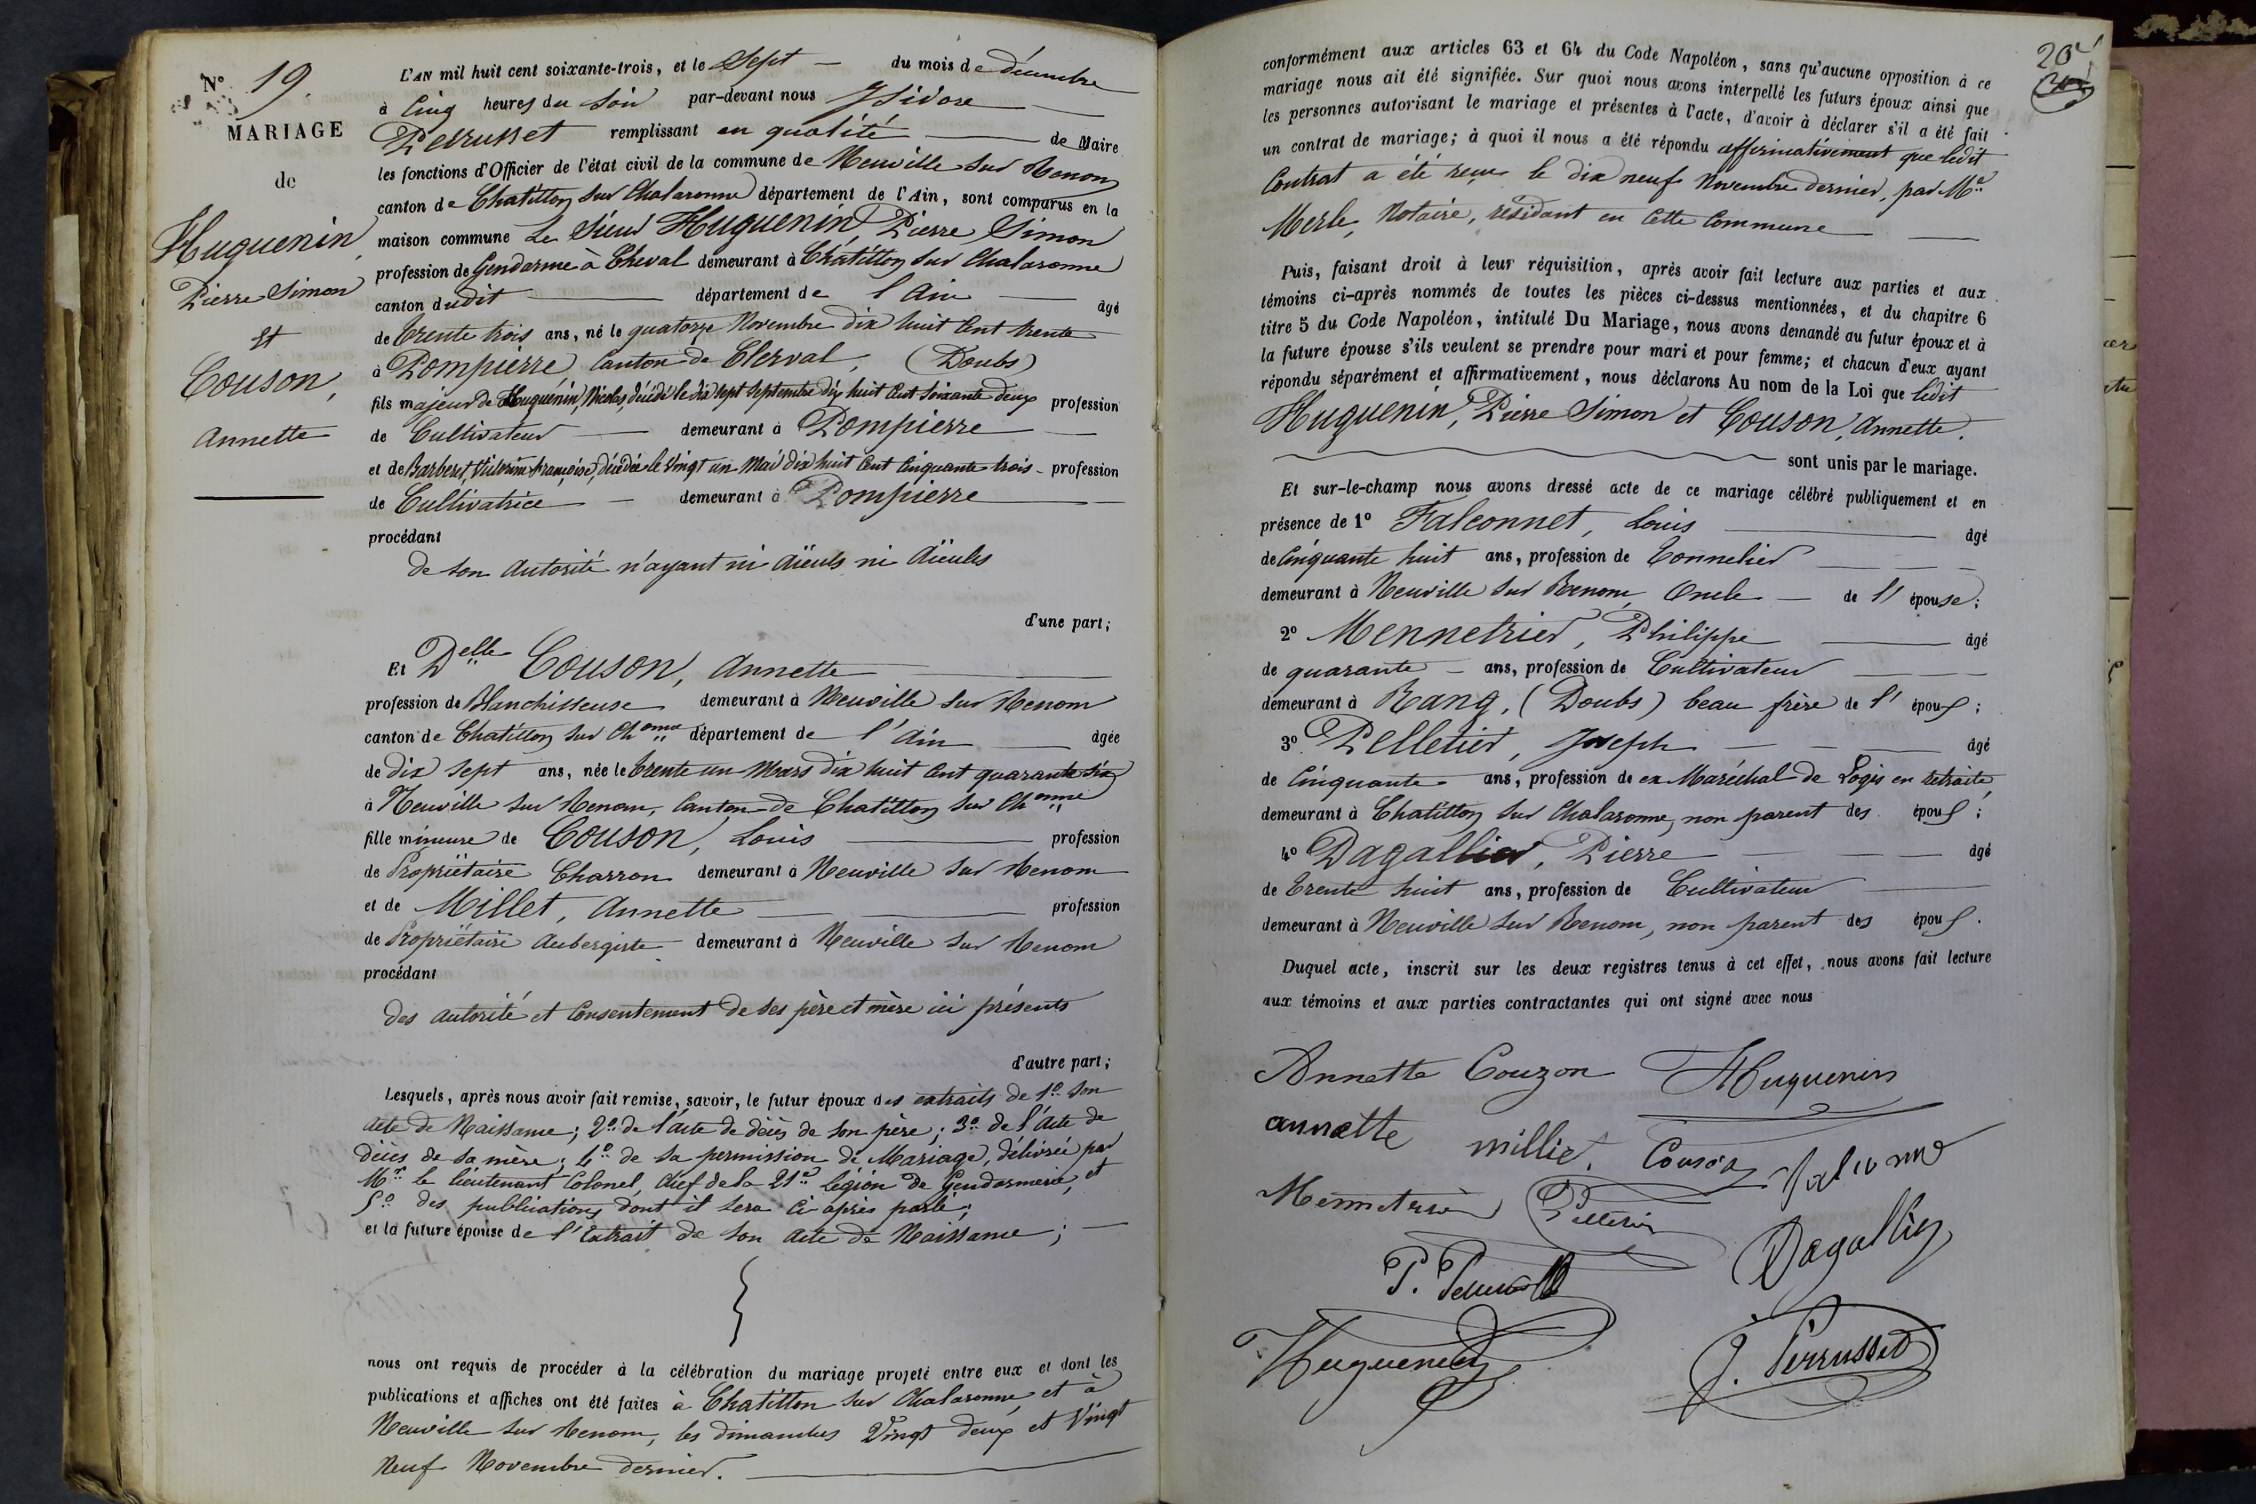 N° 19.
MARIAGE
de
Huguenin,
Pierre Simon
et
Couson,
Annette
L'AN mil huit cent soixante-trois, et le Sept du mois de décembre
à Cinq heures du Soir par-devant nous Isidore
Perrusset remplissant en qualité de Maire
les fonctions d'Officier de l'état civil de la commune de Neuville sur Renom
canton de Chatillon sur Chalaronne département de l'Ain, sont comparus en la
maison commune Le Sieur Huguenin, Pierre Simon
profession de Gendarme à Cheval demeurant à Châtillon sur Chalaronne
canton dudit département de l'Ain âgé
de trente trois ans, né le quatorze Novembre dix huit Cent trente
à Pompierre Canton de Clerval, (Doubs)
fils majeur de Huguenin, Nicolas, décédé le dix sept Septembre dix huit Cent Soixante deux profession
de Cultivateur demeurant à Pompierre
et de Barberet, Françoise, décédée le Vingt un Mai dix huit Cent Cinquante trois profession
de Cultivatrice demeurant à Pompierre
procédant
de son Autorité n'ayant ni Aïeuls ni Aïeules
d'une part;
Et Delle Couson, Annette
profession de Blanchisseuse demeurant à Neuville sur Renom
canton de Chatillon sur Chonne département de l'Ain âgée
de dix sept ans, née le trente un Mars dix huit Cent quarante six
à Neuville sur Renom, Canton de Chatillon sur Chonne
fille mineure de Couson, Louis profession
de Propriétaire Charron demeurant à Neuville sur Renom
et de Millet, Annette profession
de Propriétaire Aubergiste demeurant à Neuville sur Renom
procédant
des autorité et Consentement de ses père et mère ici présents
d'autre part;
Lesquels, après nous avoir fait remise, savoir, le futur époux des extraits de 1° Son
acte de Naissance; 2° de l'acte de décès de son père; 3° de l'acte de
décès de sa mère; 4° de sa permission de Mariage, délivrée par
Mr le lieutenant Colonel, Chef de la 21e Légion de Gendarmerie, et
5° des publications dont il sera Ci-après parlé;
et la future épouse de l'Extrait de Son Acte de Naissance;
nous ont requis de procéder à la célébration du mariage projeté entre eux et dont les
publications et affiches ont été faites à Chatillon sur Chalaronne, et à
Neuville sur Renom, les dimanches Vingt deux et Vingt
Neuf Novembre dernier.
20
conformément aux articles 63 et 64 du Code Napoléon, sans qu'aucune opposition à ce
mariage nous ait été signifiée. Sur quoi nous avons interpellé les futurs époux ainsi que
les personnes autorisant le mariage et présentes à l'acte, d'avoir à déclarer s'il a été fait
un contrat de mariage; à quoi il nous a été répondu affirmativement que ledit
Contrat a été reçu le dix neuf Novembre dernier, par Me
Merle, Notaire, résidant en Cette Commune
Puis, faisant droit à leur réquisition, après avoir fait lecture aux parties et aux
témoins ci-après nommés de toutes les pièces ci-dessus mentionnées, et du chapitre 6
titre 5 du Code Napoléon, intitulé Du Mariage, nous avons demandé au futur époux et à
la future épouse s'ils veulent se prendre pour mari et pour femme; et chacun d'eux ayant
répondu séparément et affirmativement, nous déclarons Au nom de la Loi que ledit
Huguenin, Pierre Simon et Couson, Annette.
sont unis par le mariage.
Et sur-le-champ nous avons dressé acte de ce mariage célébré publiquement et en
présence de 1° Falconnet, Louis âgé
de Cinquante huit ans, profession de Tonnelier
demeurant à Neuville sur Renom, Oncle de l'épouse;
2° Mennetrier, Philippe âgé
de quarante ans, profession de Cultivateur
demeurant à Rang, (Doubs) beau frère de l'époux;
3° Pelletier, Joseph âgé
de Cinquante ans, profession de ex Maréchal de Logis en retraite,
demeurant à Chatillon sur Chalaronne, non parent des époux;
4° Dagallier, Pierre âgé
de trente huit ans, profession de Cultivateur
demeurant à Neuville sur Renom, non parent des époux.
Duquel acte, inscrit sur les deux registres tenus à cet effet, nous avons fait lecture
aux témoins et aux parties contractantes qui ont signé avec nous
Annette Couzon Huguenin
annette milliet. Couson
Mennetrier Pelletier
Dagallier
Huguenin J. Perrusset